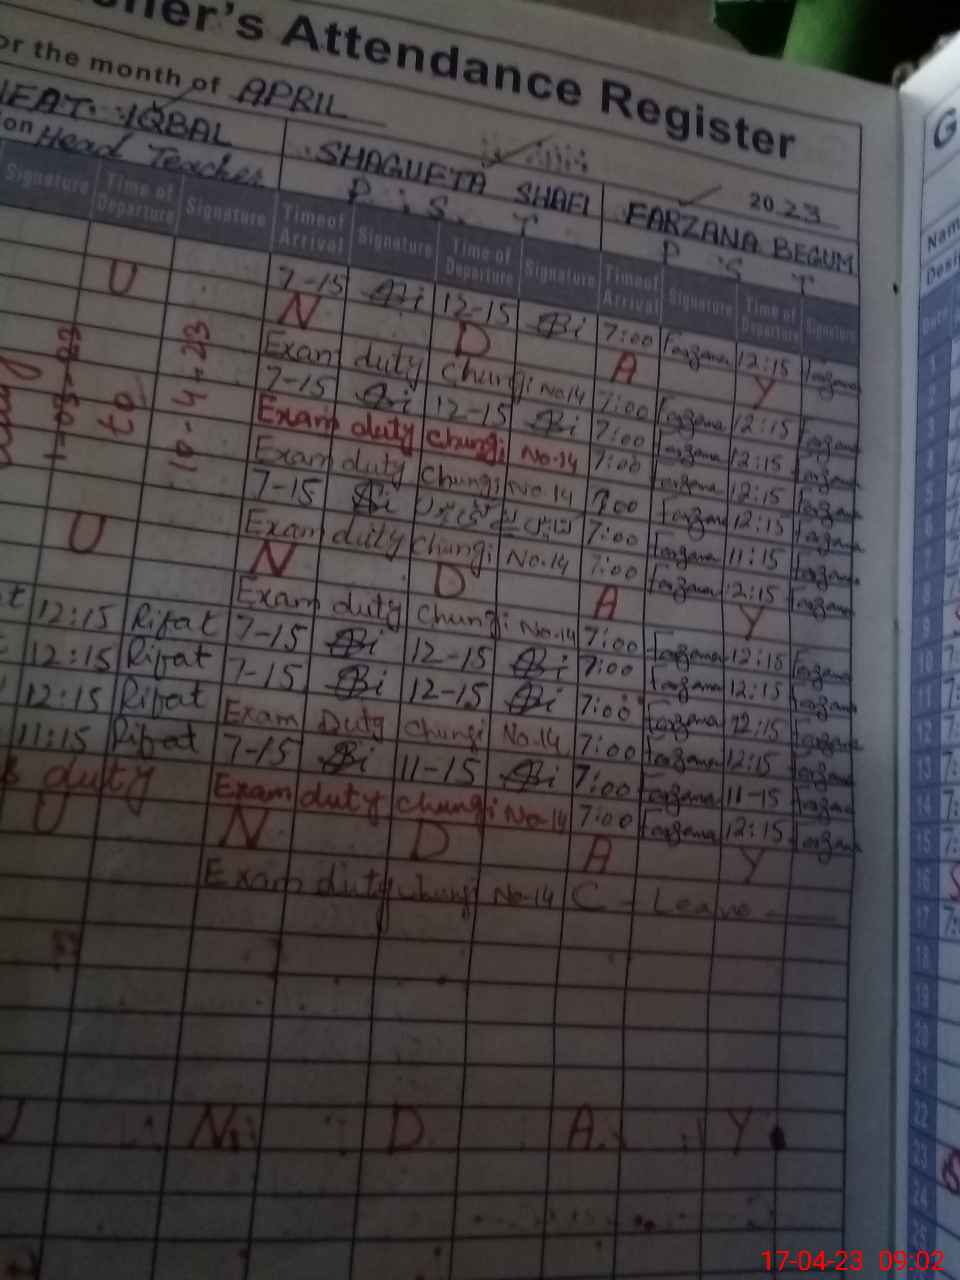 Attendance Register
for the month of APRIL
2023
IQBAL SHAGUFTA SHAFI FARZANA BEGUM
Head Teacher P.S.T P S T
Signature Time of Departure Signature Time of Arrival Signature Time of Departure Signature Time of Arrival Signature Time of Departure Signature
7-15 12-15 7:00 Farzana 12:15 Farzana
U N D A Y
Exam duty chungi No.14 7:00 Farzana 12:15 Farzana
7-15 12-15 7:00 Farzana 12:15 Farzana
Exam duty chungi No.14 7:00 Farzana 12:15 Farzana
Exam duty chungi No.14 7:00 Farzana 12:15 Farzana
7-15 7:00 Farzana 11:15 Farzana
Exam duty chungi No.14 7:00 Farzana 12:15 Farzana
U N D A Y
to
10-4-23
Exam duty chungi No.14 7:00 Farzana 12:15 Farzana
12:15 Rifat 7-15 12-15 7:00 Farzana 12:15 Farzana
12:15 Rifat 7-15 12-15 7:00 Farzana 12:15 Farzana
12:15 Rifat Exam Duty Chungi No.14 7:00 Farzana 12:15 Farzana
11:15 Rifat 7-15 11-15 7:00 Farzana 11-15 Farzana
duty Exam duty chungi No-14 7:00 Farzana 12:15 Farzana
U N D A Y
Exam duty chungi No-14 C - Leave
N D A Y
G
1
2
3
4
5
6
7
8
9
10
11
12
13
14
15
16
17
18
19
20
21
22
23
24
25
17-04-23 09:02